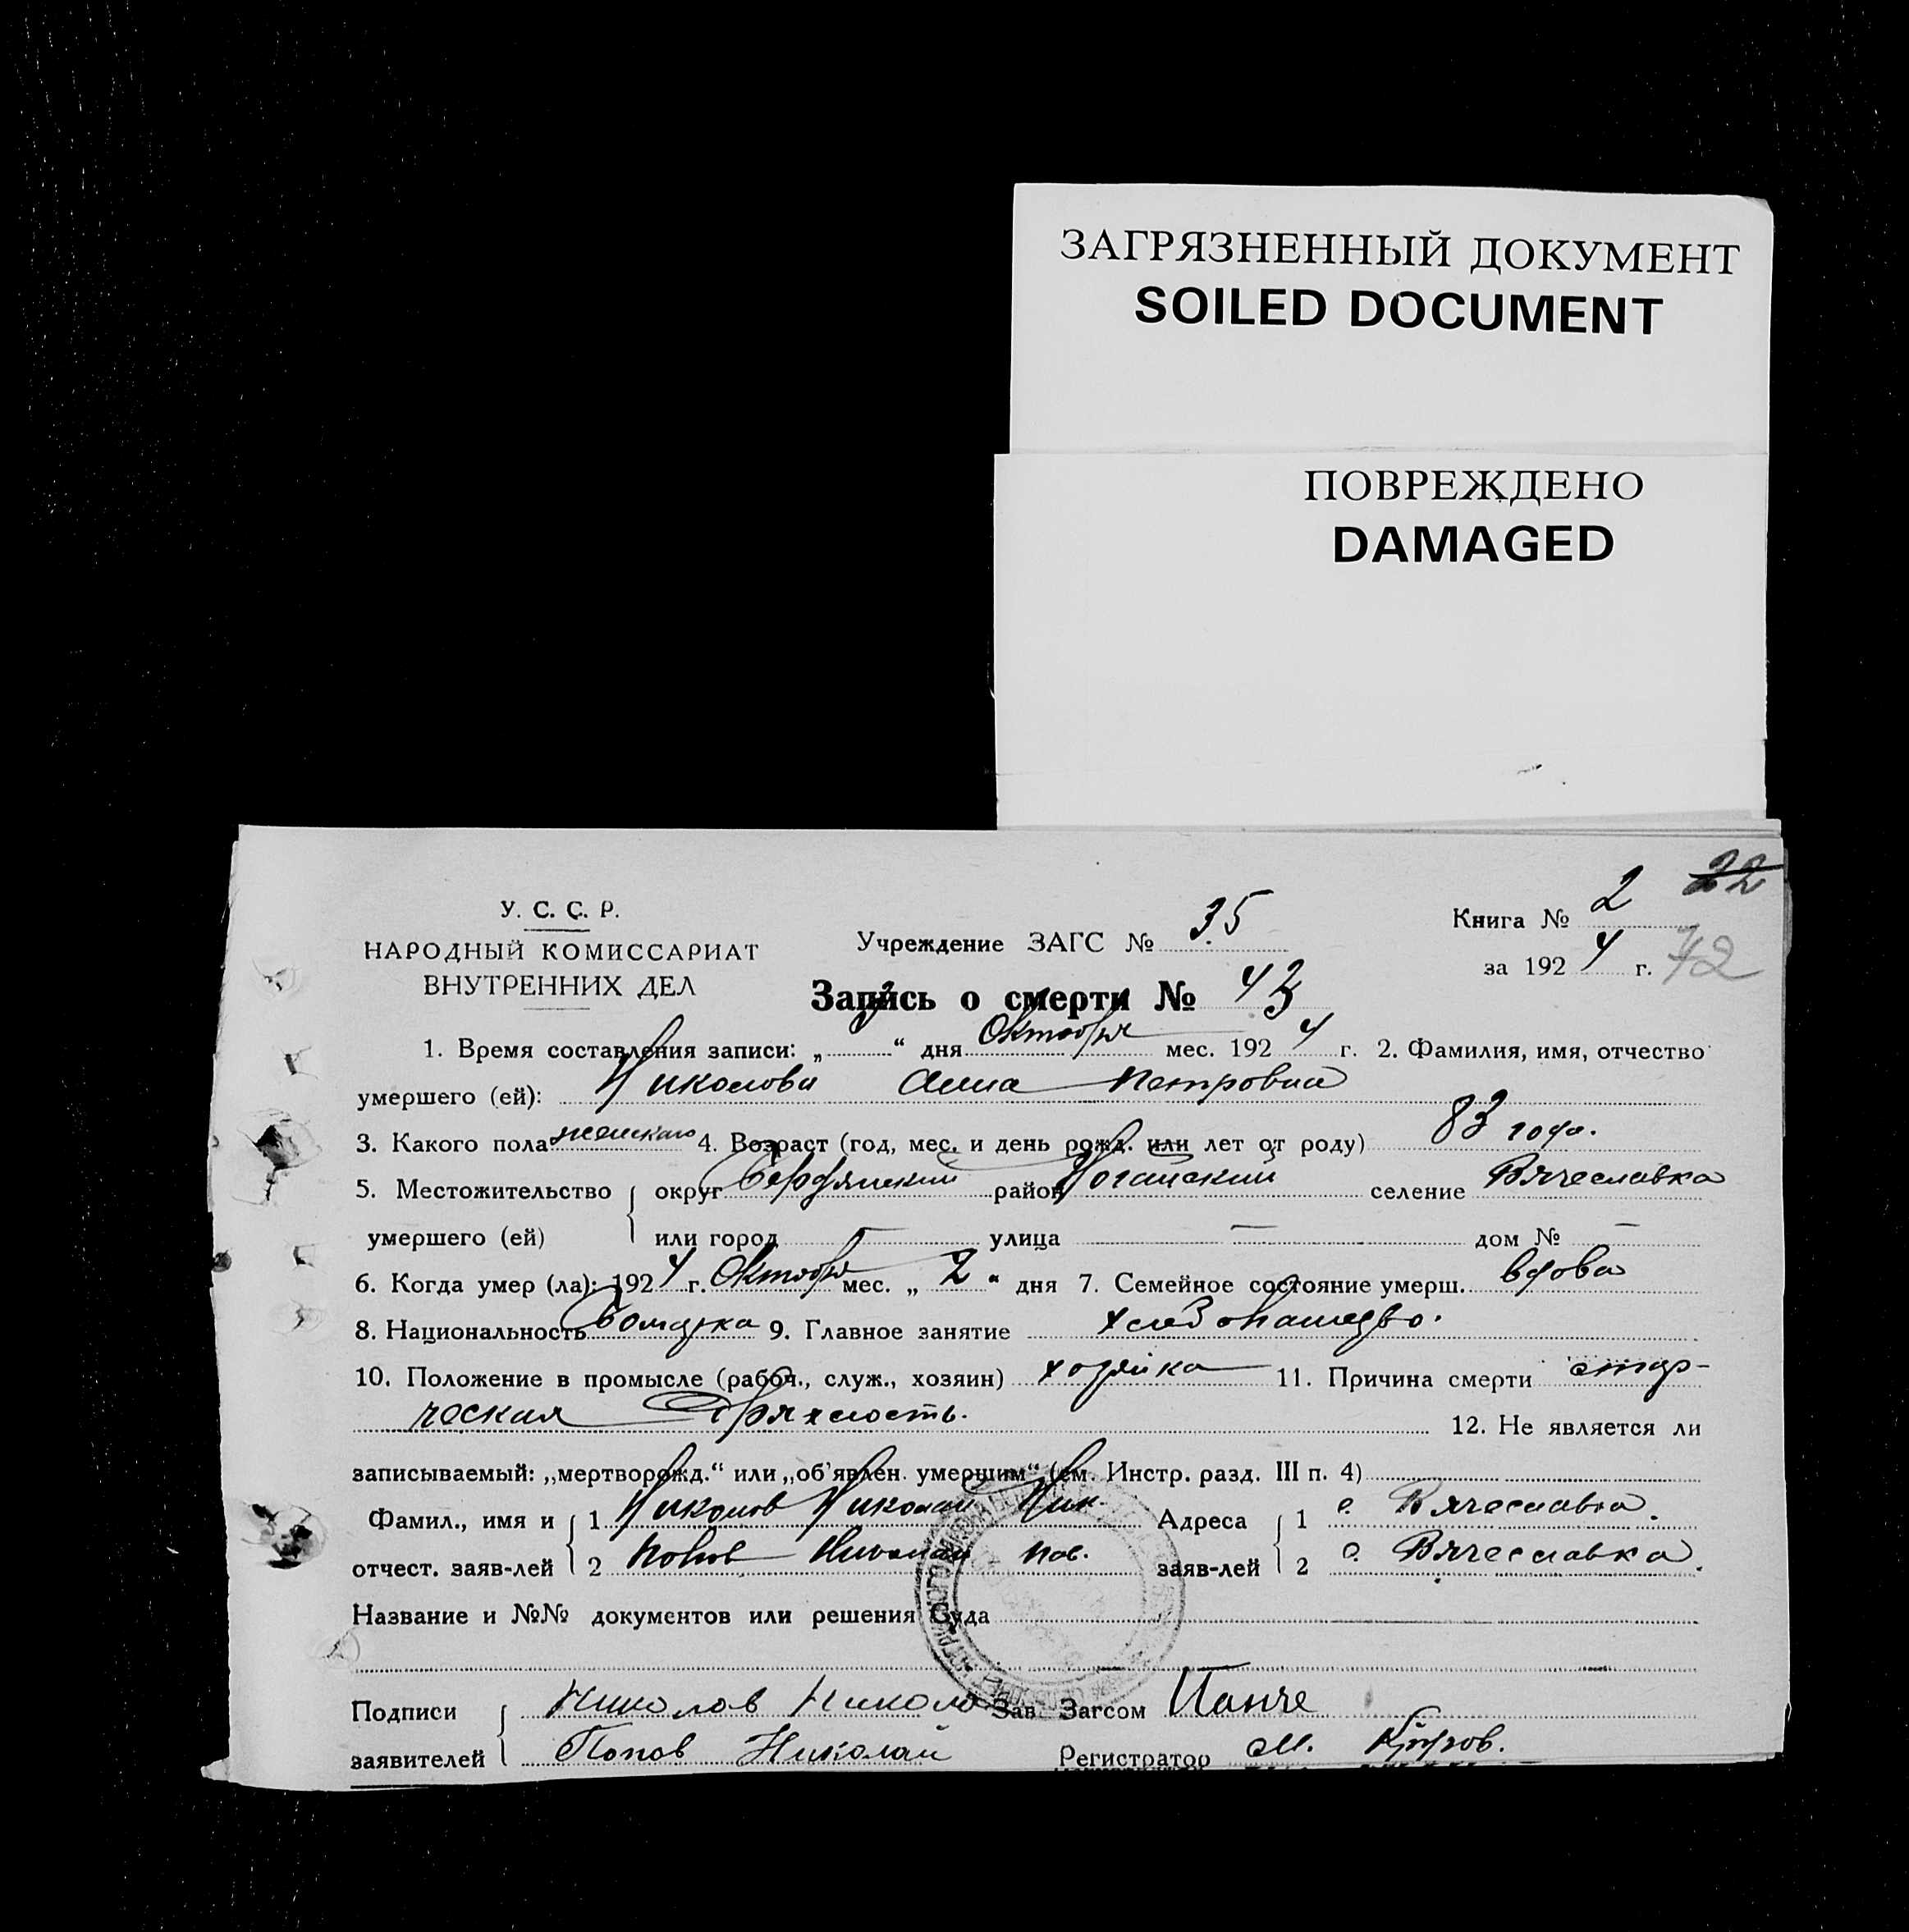 ЗАГРЯЗНЕННЫЙ ДОКУМЕНТ
SOILED DOCUMENT
ПОВРЕЖДЕНО
DAMAGED
22
У. С. С. Р.
НАРОДНЫЙ КОМИССАРИАТ
ВНУТРЕННИХ ДЕЛ
Учреждение ЗАГС № 35
Книга № 2
за 1924 г. 42
Запись о смерти № 43
1. Время составления записи: „3“ дня Октября мес. 1924 г. 2. Фамилия, имя, отчество
умершего (ей): Николова Анна Петровна
3. Какого пола женского 4. Возраст (год, мес. и день рожд. или лет от роду) 83 года.
5. Местожительство округ Бердянский район Ногайский селение Вячеславка
умершего (ей) или город — улица — дом № —
6. Когда умер (ла): 1924 г. Октября мес. „2“ дня 7. Семейное состояние умерш. вдова
8. Национальность Болгарка 9. Главное занятие хлебопашество.
10. Положение в промысле (рабоч., служ., хозяин) хозяйка 11. Причина смерти старческая
дряхлость. 12. Не является ли
записываемый: „мертворожд.“ или „об'явлен. умершим“ (см. Инстр. разд. III п. 4)
Фамил., имя и 1 Николов Николай Ник. Адреса 1 с. Вячеславка.
отчест. заяв-лей 2 Попов Николай Пав. заяв-лей 2 с. Вячеславка.
Название и №№ документов или решения Суда
Подписи Николов Никола Зав Загсом Панче
заявителей Попов Николай Регистратор М.